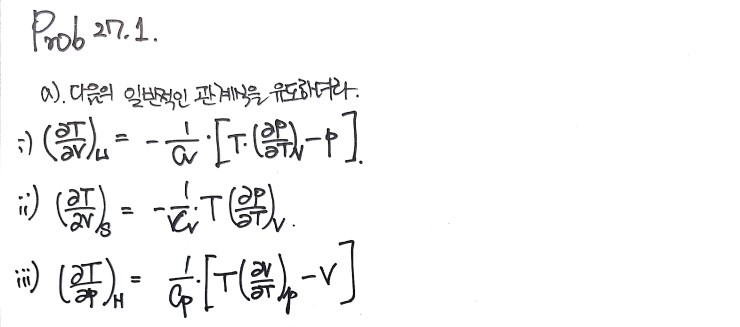 Prob 27.1.
a). 다음의 일반적인 관계식을 유도하여라.
i) (∂T/∂V)_U = -1/C_V · [T·(∂P/∂T)_V - P].
ii) (∂T/∂V)_S = -1/C_V · T(∂P/∂T)_V.
iii) (∂T/∂P)_H = 1/C_P · [T(∂V/∂T)_P - V]